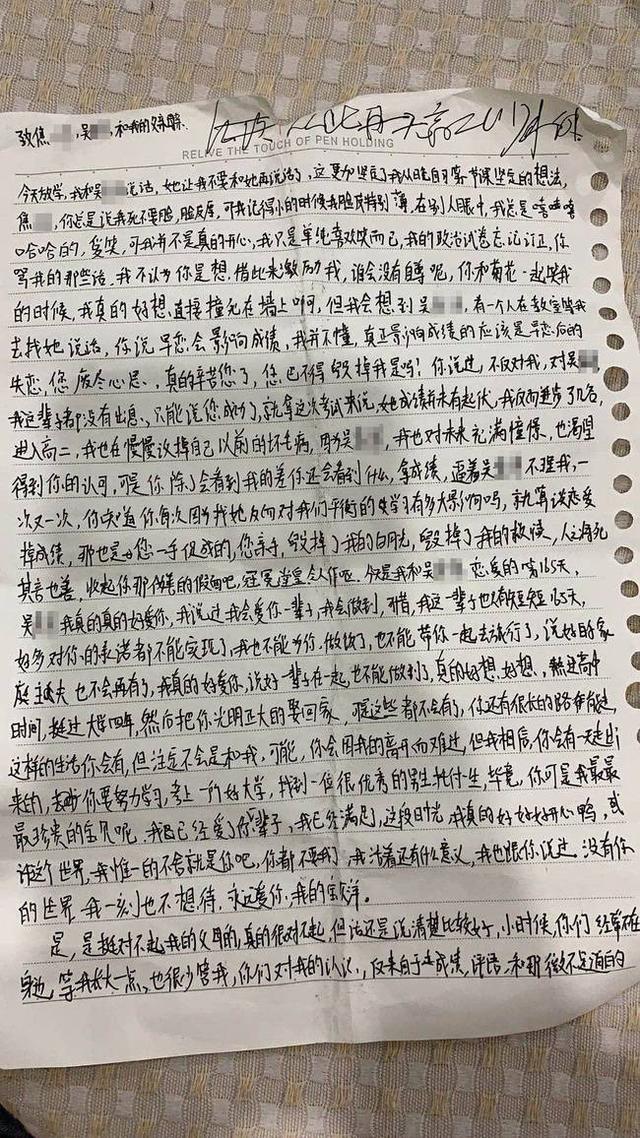 致焦，吴，和我的父亲母亲
RELIVE THE TOUCH OF PEN HOLDING
今天放学，我和吴说话，她让我不要和她再说话了，这更加坚定了我从晚自习第节课坚定的想法，
焦，你总是说我死不要脸，脸皮厚，可我记得小的时候我脸皮特别薄，在别人眼中，我总是嘻嘻
哈哈的，爱笑，可我并不是真的开心，我只是单纯喜欢笑而已，我的政治试卷忘记订正，你
骂我的那些话，我不认为你是想借此来激励我，谁会没有自尊呢，你和菊花一起笑我
的时候，我真的好想直接撞死在墙上啊，但我会想到吴，有一个人在教室等我
去找她说话，你说早恋会影响成绩，我并不懂，真正影响成绩的应该是早恋后的
失恋，您废尽心思，真的辛苦您了，您巴不得毁掉我是吗？你说过，不仅对我，对吴
我这辈子都没有出息，只能说您成功了，就拿这次考试来说，她成绩并未有起伏，我反而进步了几名，
进入高二，我也在慢慢改掉自己以前的坏毛病，因为吴，我也对未来充满憧憬，也渴望
得到你的认可，可是你除了会看到我的差你还会看到什么，拿成绩，逼着吴不理我，一
次又一次，你知道你每次因为我她反而对我们平衡的学习有多大影响吗，就算谈恋爱
掉成绩，那也是您一手促成的，您亲手毁掉了我的白月光，毁掉了我的救赎，人之将死
其言也善，收起你那伪善的假面吧，冠冕堂皇令人作呕。今天是我和吴恋爱的第165天，
吴我真的真的好爱你，我说过我会爱你一辈子，我会做到，可惜，我这一辈子也只有短短165天，
好多对你的承诺都不能实现了，我也不能为你做饭了，也不能带你一起去旅行了，说好的家
庭主夫也不会再有了，我真的好爱你，说好一辈子在一起，也不能做到了，真的好想，好想，熬过高中
时间，挺过大学四年，然后把你光明正大的娶回家，可这些都不会有了，你还有很长的路要走，
这样的生活你会有，但注定不会是和我，可能，你会因我的离开而难过，但我相信，你会有一天走出
来的，你要努力学习，考上一所好大学，找到一位很优秀的男生托付一生，毕竟，你可是我最最
最珍贵的宝贝呢，我已经爱了你一辈子，我已经满足，这段时光，我真的好好好开心鸭，或
许这个世界，我惟一的不舍就是你吧，你都不要我了，我活着还有什么意义，我也跟你说过，没有你
的世界，我一刻也不想待，永远爱你，我的
是，是挺对不起我的父母的，真的很对不起，但话还是说清楚比较好，小时候，你们经常不在
身边，等我长大一点，也很少管我，你们对我的认识，仅来自于成绩，评语，和那微不足道的